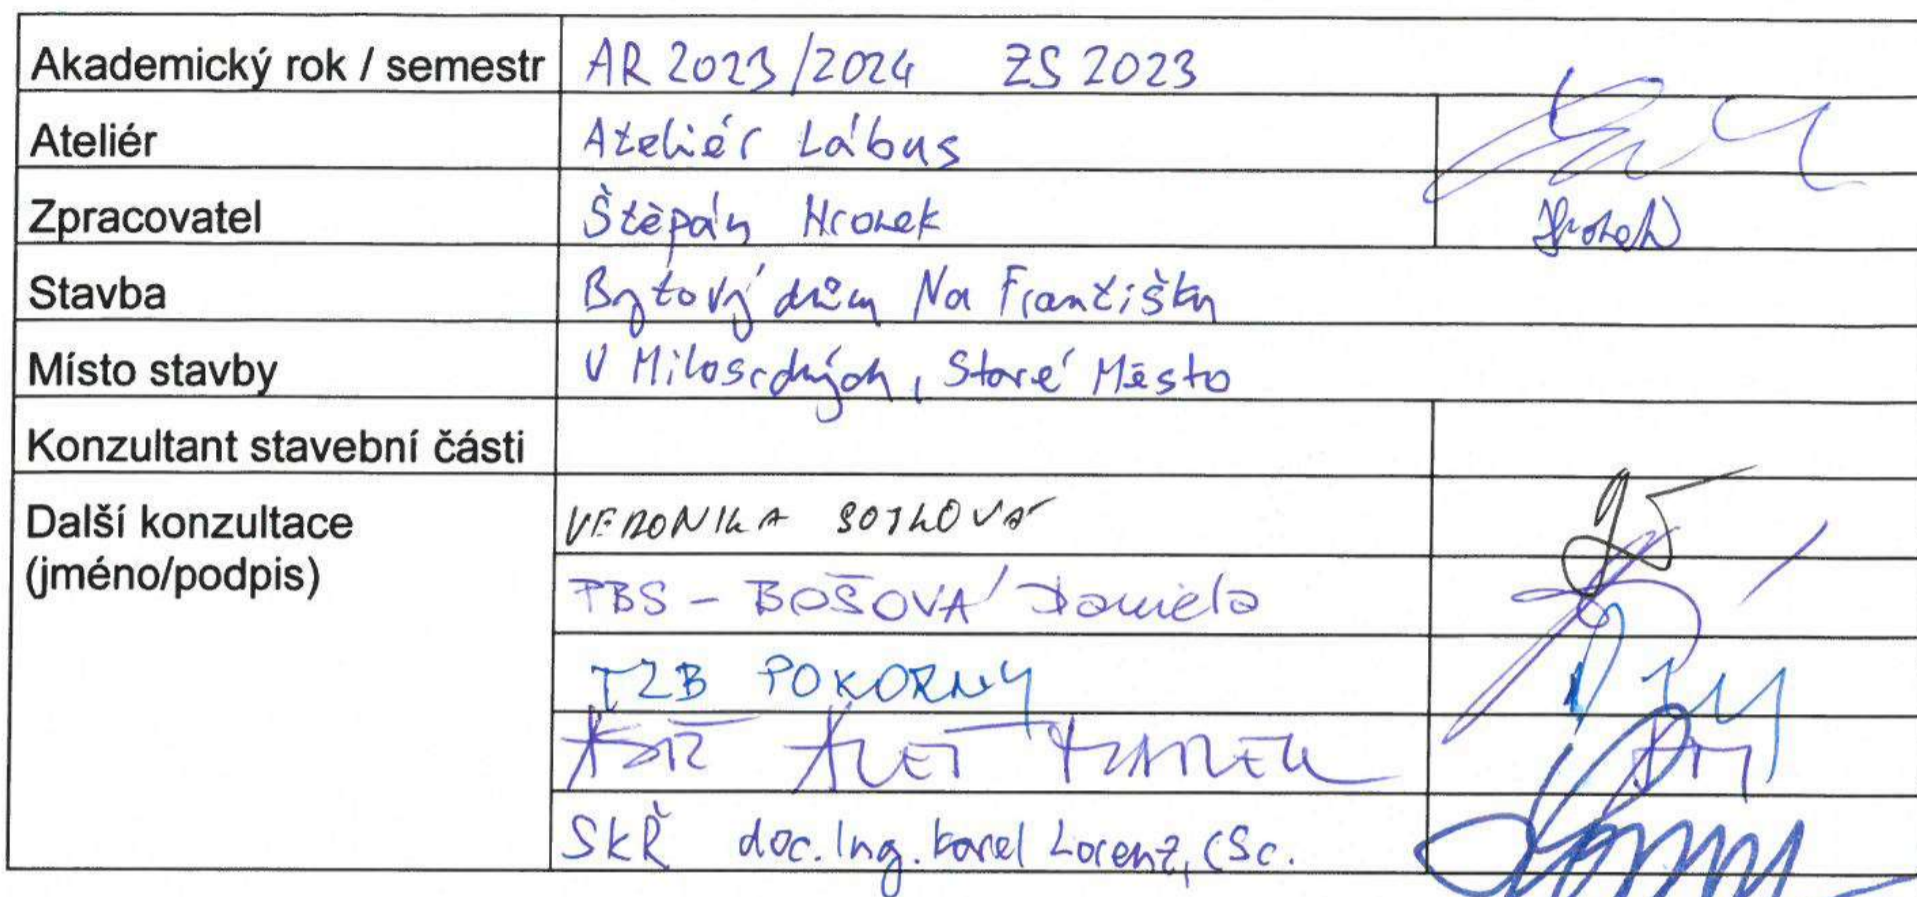 Akademický rok / semestr AR 2023/2024 ZS 2023
Ateliér Ateliér Lábus
Zpracovatel Štěpán Hronek
Stavba Bytový dům Na Františku
Místo stavby V Milosrdných, Staré Město
Konzultant stavební části
Další konzultace VERONIKA SOJKOVÁ
(jméno/podpis) PBS - BOŠOVÁ Daniela
TZB POKORNÝ
ALEŠ MAREK
SKŘ doc. Ing. Karel Lorenz, CSc.